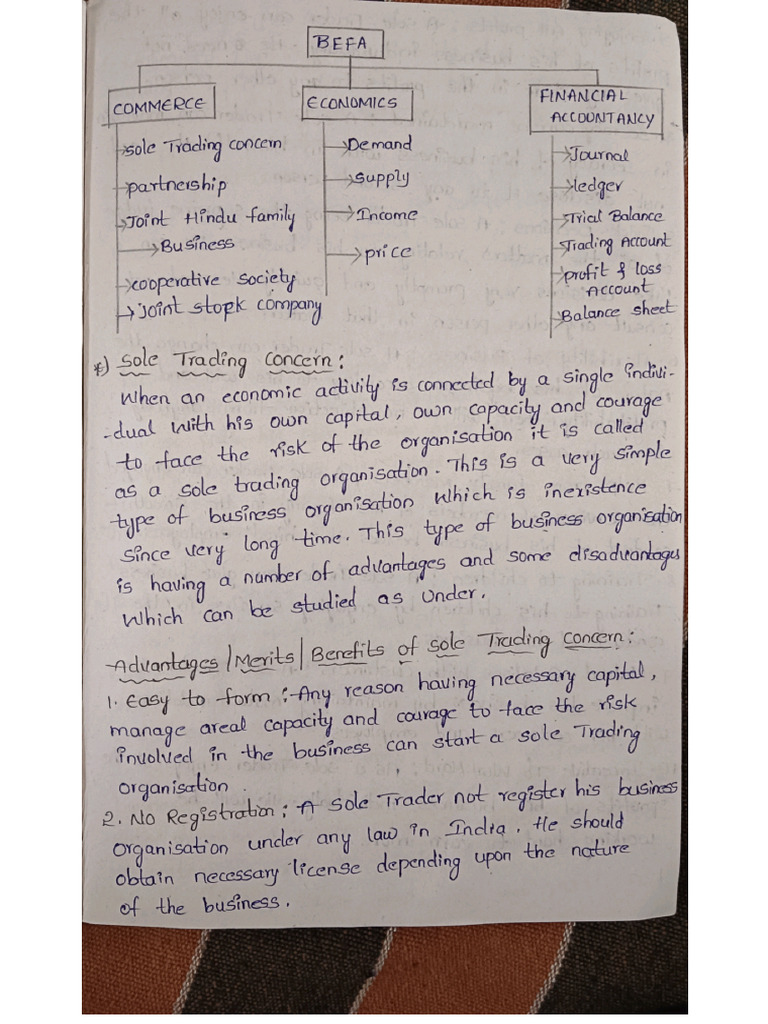 BEFA
COMMERCE
ECONOMICS
FINANCIAL
ACCOUNTANCY
sole Trading concern
partnership
Joint Hindu family
Business
cooperative society
Joint stopk company
Demand
supply
Income
price
Journal
ledger
Trial Balance
Trading Account
profit & loss
Account
Balance sheet
*) Sole Trading Concern:
When an economic activity is connected by a single indivi-
-dual with his own capital, own capacity and courage
to face the risk of the organisation it is called
as a sole trading organisation. This is a very simple
type of business organisation which is inexistence
since very long time. This type of business organisation
is having a number of advantages and some disadvantages
which can be studied as under.
Advantages/Merits/Benefits of sole Trading concern:
1. Easy to form :- Any reason having necessary capital,
manage areal capacity and courage to face the risk
involved in the business can start a sole Trading
organisation.
2. No Registration: A sole Trader not register his business
organisation under any law in India. He should
obtain necessary license depending upon the nature
of the business.